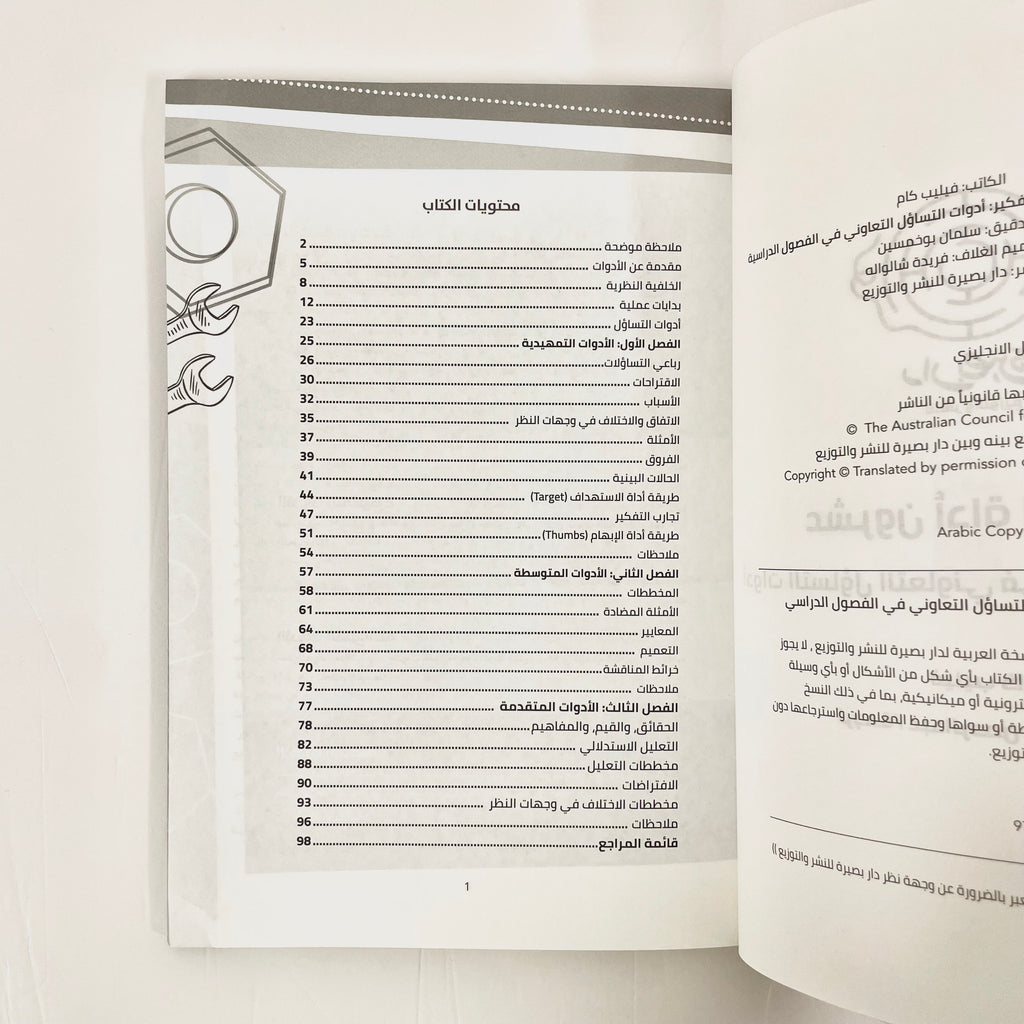 الكاتب: فيليب كام
فكير: أدوات التساؤل التعاوني في الفصول الدراسية
دقيق: سلمان بوخمسين
ميم الغلاف: فريدة شالواله
ر: دار بصيرة للنشر والتوزيع
ل الانجليزي
بها قانونياً من الناشر
© The Australian Council f
ع بينه وبين دار بصيرة للنشر والتوزيع
Copyright © Translated by permission
Arabic Copy
لتساؤل التعاوني في الفصول الدراسي
سخة العربية لدار بصيرة للنشر والتوزيع , لا يجوز
الكتاب بأي شكل من الأشكال أو بأي وسيلة
ترونية أو ميكانيكية, بما في ذلك النسخ
طة أو سواها وحفظ المعلومات واسترجاعها دون
توزيع.
عبر بالضرورة عن وجهة نظر دار بصيرة للنشر والتوزيع ))
محتويات الكتاب
ملاحظة موضحة 2
مقدمة عن الأدوات 5
الخلفية النظرية 8
بدايات عملية 12
أدوات التساؤل 23
الفصل الأول: الأدوات التمهيدية 25
رباعي التساؤلات 26
الاقتراحات 30
الأسباب 32
الاتفاق والاختلاف في وجهات النظر 35
الأمثلة 37
الفروق 39
الحالات البينية 41
طريقة أداة الاستهداف (Target) 44
تجارب التفكير 47
طريقة أداة الإبهام (Thumbs) 51
ملاحظات 54
الفصل الثاني: الأدوات المتوسطة 57
المخططات 58
الأمثلة المضادة 61
المعايير 64
التعميم 68
خرائط المناقشة 70
ملاحظات 73
الفصل الثالث: الأدوات المتقدمة 77
الحقائق, والقيم, والمفاهيم 78
التعليل الاستدلالي 82
مخططات التعليل 88
الافتراضات 90
مخططات الاختلاف في وجهات النظر 93
ملاحظات 96
قائمة المراجع 98
1